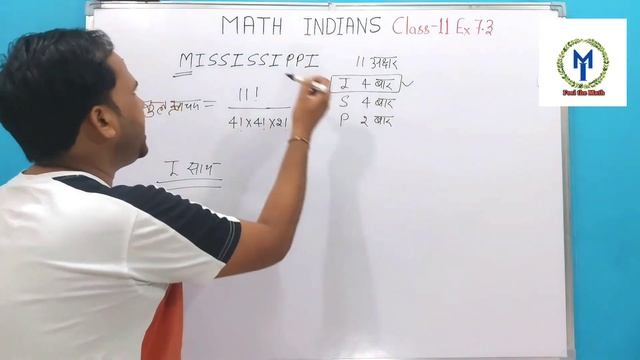 MATH INDIANS Class-11 Ex 7.3
MISSISSIPPI
11 अक्षर
I 4 बार
S 4 बार
P 2 बार
= 11!
4! x 4! x 2!
I साथ
MI
Feel the Math